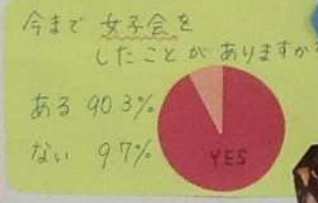 今まで 女子会を
したことがありますか?
ある 90.3%
ない 9.7%
YES